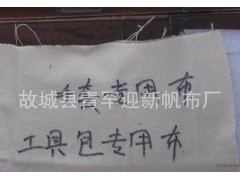 手套专用布
故城县青罕迎新帆布厂
工具包专用布